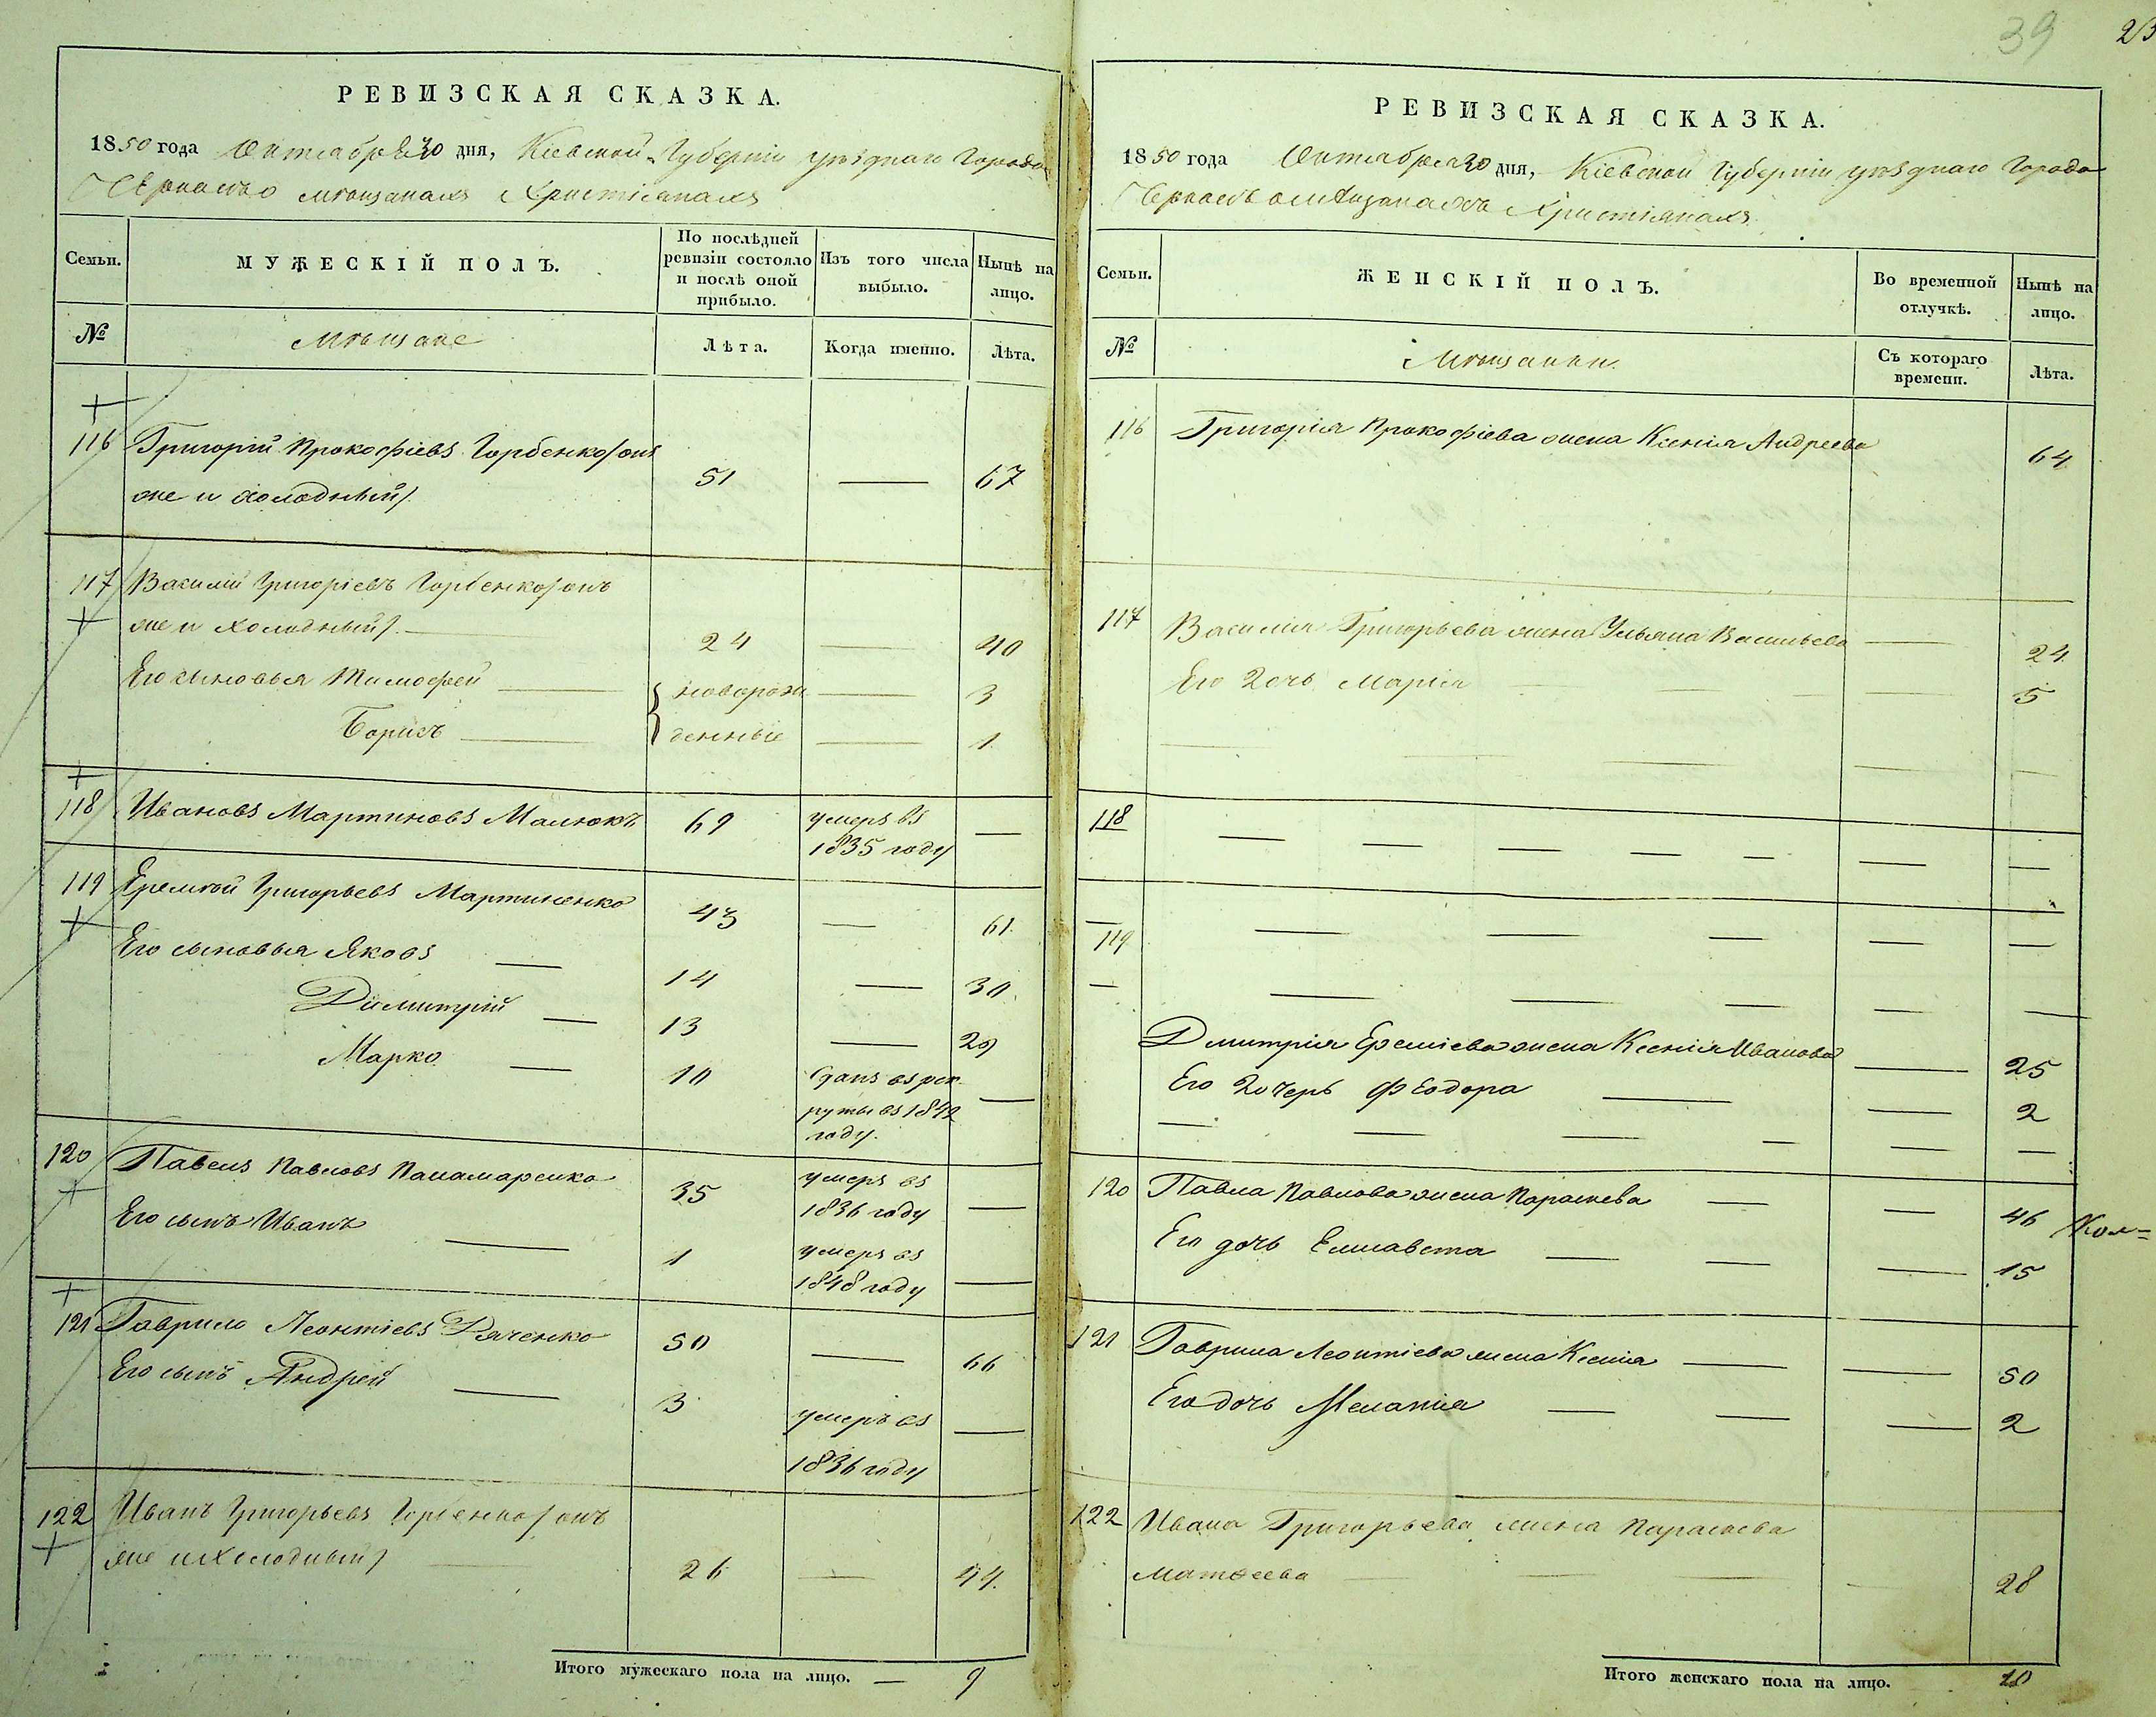 39 23
РЕВИЗСКАЯ СКАЗКА.
1850 года Октября 30 дня, Кіевской Губерніи уѣзднаго Города
Черкасъ о мѣщанахъ Христіянахъ
Семьи.
МУЖЕСКІЙ ПОЛЪ.
По послѣдней ревизіи состояло и послѣ оной прибыло.
Изъ того числа выбыло.
Нынѣ на лицо.
№
Мѣщане
Лѣта.
Когда именно.
Лѣта.
116 Григорій Прокофіевъ Горбенко/онъ
же и Холодный/ 51 — 67
117 Василій Григоріевъ Горбенко/онъ
же и Холодный/. — 24 — 40
Его сыновья Тимофей — новорож — 3
Борисъ — денные — 1
118 Ивановъ Мартиновъ Малюкъ 69 умеръ въ —
1835 году
119 Еремѣй Григорьевъ Мартиненко 43 — 61.
Его сыновья Яковъ — 14 — 30.
Димитрій — 13 — 29
Марко — 10 Сданъ въ рек —
руты въ 1842
году.
120 Павелъ Павловъ Панамаренко 35 умеръ въ
1836 году —
Его сынъ Иванъ — 1 умеръ въ
1848 году —
121 Гаврило Леонтіевъ Дяченко 50 — 66
Его сынъ Андрей — 3 умеръ въ —
1836 году
122 Иванъ Григорьевъ Горбенко/онъ
же и Холодный/ — 26 — 44.
Итого мужескаго пола на лицо. — 9
РЕВИЗСКАЯ СКАЗКА.
1850 года Октября 30 дня, Кіевской Губерніи уѣзднаго Города
Черкасъ о мѣщанахъ Христіянахъ.
Семьи.
ЖЕНСКІЙ ПОЛЪ.
Во временной отлучкѣ.
Нынѣ на лицо.
№
Мѣщанки.
Съ котораго времени.
Лѣта.
116 Григорія Прокофіева жена Ксенія Андреева 64
117 Василія Григорьева жена Ульяна Васильева — 24
Его дочь Марія — — — — 5
— — — — —
118 — — — — — — —
119 — — — — —
— — — — — —
Дмитрія Ереміева жена Ксенія Иванова — 25
Его дочерь Феодора — — 2
— — — — — —
120 Павла Павлова жена Параскева — — 46
Его дочь Елисавета — — — 15
121 Гаврила Леонтіева жена Ксенія — — 50
Его дочь Меланія — — — 2
122 Ивана Григорьева жена Параскева
Матѳеева — — — — 28
Итого женскаго пола на лицо. 10